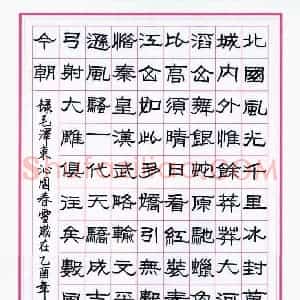 北國風光千里冰封萬
城内外惟餘莽莽大河
滔山舞銀蛇原馳蠟象
比高須晴日看紅裝素
江山如此多嬌引無數
惜秦皇漢武略輸文采
遜風騷一代天驕成吉
弓射大雕俱往矣數風
今朝
毛澤東沁園春雪歲在乙酉年